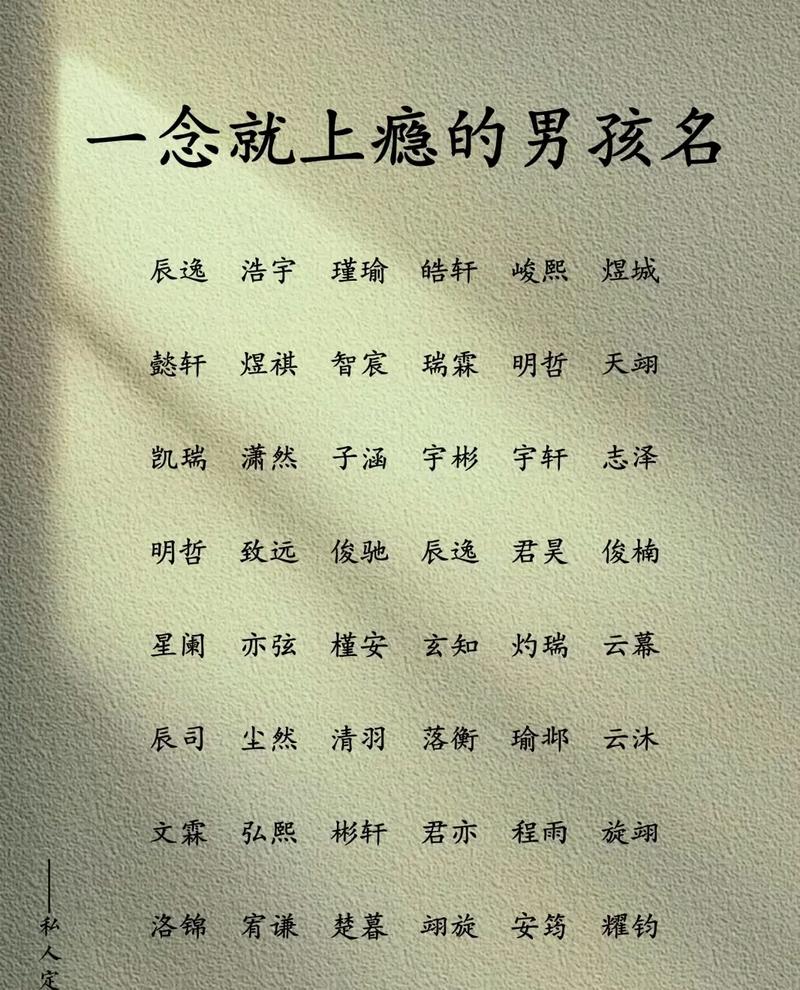 一念就上瘾的男孩名
辰逸 浩宇 瑾瑜 皓轩 峻熙 煜城
懿轩 煜祺 智宸 瑞霖 明哲 天翊
凯瑞 潇然 子涵 宇彬 宇轩 志泽
明哲 致远 俊驰 辰逸 君昊 俊楠
星阑 亦弦 槿安 玄知 灼瑞 云幕
辰司 尘然 清羽 落衡 瑜邶 云沐
文霖 弘熙 彬轩 君亦 程雨 旋翊
洛锦 宥谦 楚暮 翊旋 安筠 耀钧
——私人定